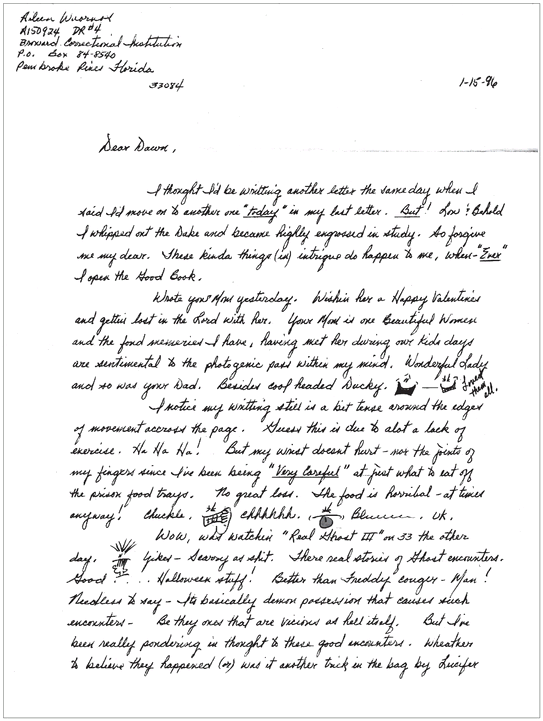 Aileen Wuornos
A150924 DR#4
Broward Correctional Institution
P.O. Box 84-8540
Pembroke Pines Florida
33084
1-15-96
Dear Dawn,
I thought I'd be writting another letter the same day when I
said I'd move on to another one "today" in my last letter. But! Low & Behold
I whipped out the Dake and became highly engrossed in study. So forgive
me my dear. These kinda things (in) intrigue do happen to me, when - "Ever"
I open the Good Book.
Wrote your Mom yesterday. Wishin her a Happy Valentines
and gettin lost in the Lord with her. Your Mom is one Beautiful Women
and the fond memeries I have, having met her during our kids days
are sentimental to the photogenic pass within my mind. Wonderful Lady
and so was your Dad. Besides cool headed Ducky. Loved them all.
I notice my writting still is a bit tense around the edges
of movement accross the page. Guess this is due to alot a lack of
exercise. Ha Ha Ha! But my wrist doesnt hurt - nor the joints of
my fingers since I've been being "Very Careful" at just what to eat off
the prison food trays. No great loss. The food is horribal - at times
anyway! Chuckle. Chhhhhh. Bluuuu. UK.
WOW, was watchin "Real Ghost III" on 33 the other
day. Yikes - Scarory as spit. There real stories of Ghost encounters.
Good . . . . Halloween stuff! Better than Freddy couger - Man!
Needless to say - Its basically demon possession that causes such
encounters - Be they ones that are vicious as hell itself. But I've
been really pondering in thought to these good encounters. Wheather
to believe they happened (or) was it another trick in the bag by Lucifer